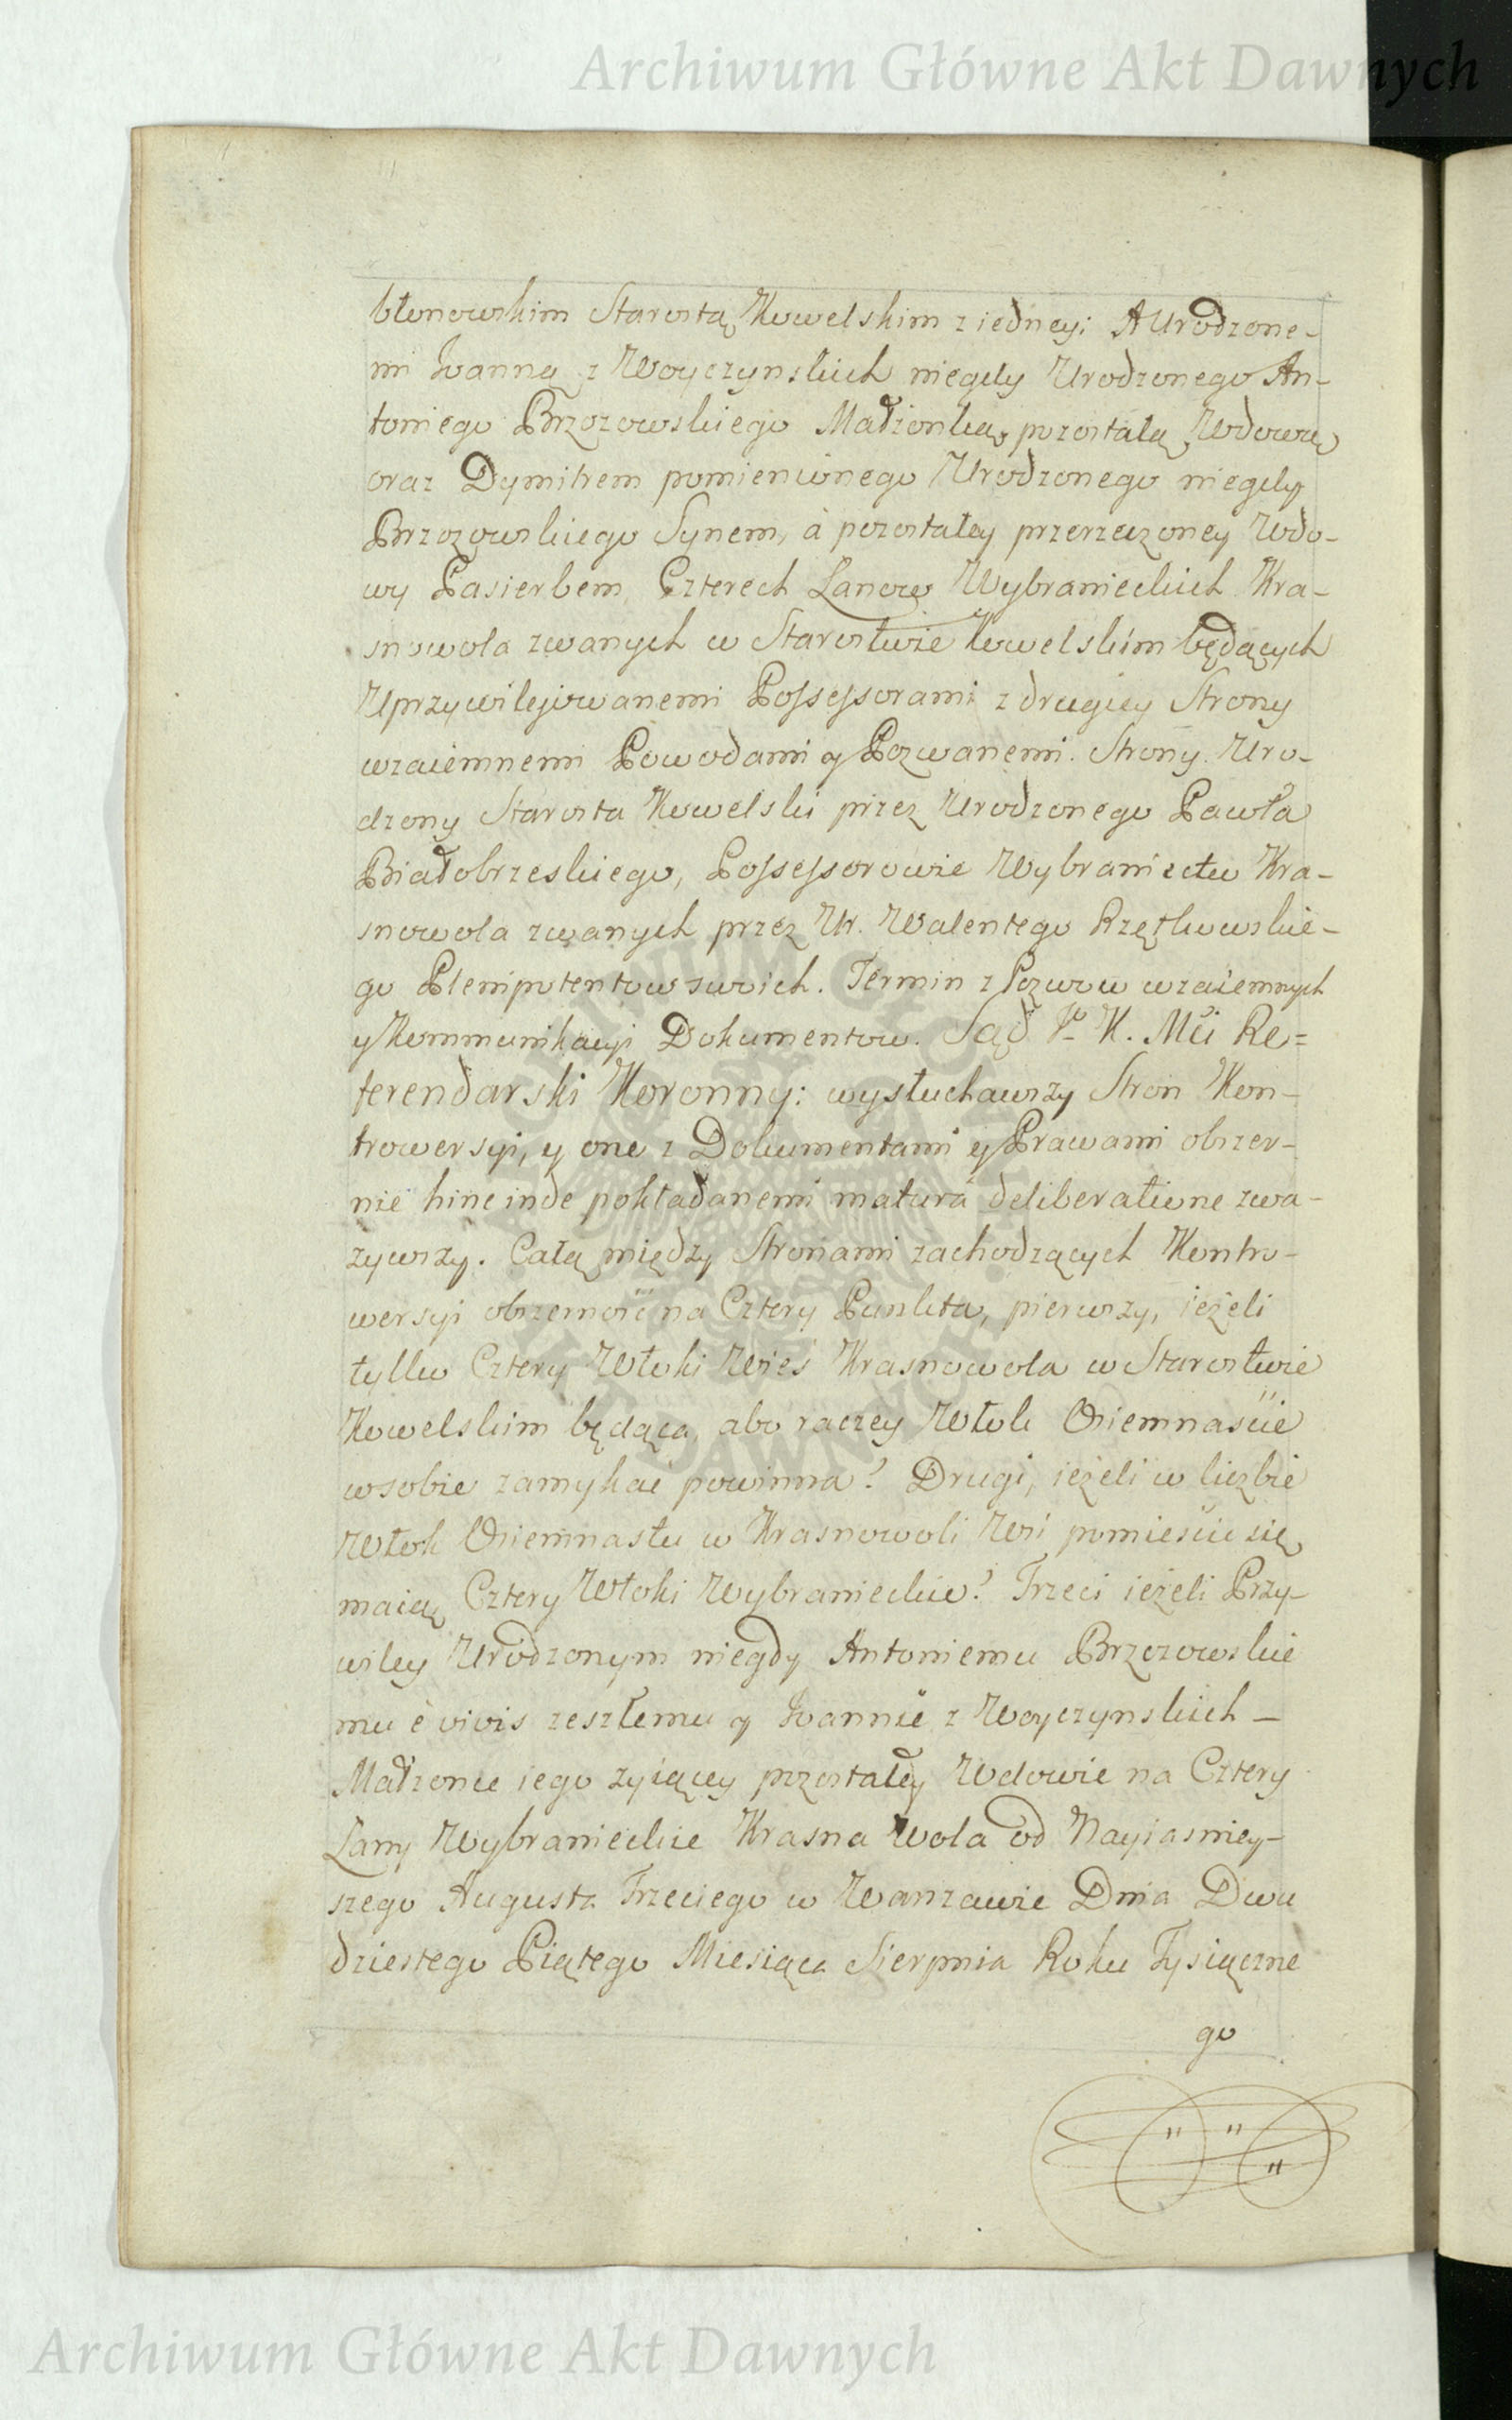 Archiwum Główne Akt Dawnych
błonowskim Starostą Kowelskim z iedney: A Urodzone-
mi Joanną z Woyczynskich niegdy Urodzonego An-
toniego Brzozowskiego Małżonką, pozostałą Wdową
oraz Dymitrem pomienionego Urodzonego niegdy
Brzozowskiego Synem, à pozostałey przerzeczoney Wdo-
wy Pasierbem, Czterech Łanow Wybranieckich Kra-
snowola zwanych w Starostwie Kowelskim będących
Uprzywilejowanemi Possessorami z drugiey Strony
wzaiemnemi Powodami y Pozwanemi. Strony. Uro-
dzony Starosta Kowelski przez Urodzonego Pawła
Białobrzeskiego, Possessorowie Wybraniectw Kra-
snowola zwanych przez Ur. Walentego Rzętkowskie-
go Plenipotentow swoich. Termin z Pozwow wzaiemnych
y Kommunikacyi Dokumentow. Sąd J. K. Mci Re=
ferendarski Koronny: wysłuchawszy Stron Kon-
trowersyi, y one z Dokumentami y Prawami obszer-
nie hinc inde pokładanemi matura deliberatione zwa-
żywszy. Całą między Stronami zachodzących Kontro-
wersyi obszerność na Cztery Punkta, pierwszy, ieżeli
tylko Cztery Włoki Wieś Krasnowola w Starostwie
Kowelskim będąca, abo raczey Włok Osiemnaście
w sobie zamykać powinna? Drugi, ieżeli w liczbie
Włok Osiemnastu w Krasnowoli Wsi pomieścić się
maią Cztery Włoki Wybranieckie? Trzeci ieżeli Przy-
wiley Urodzonym niegdy Antoniemu Brzozowskie
mu è vivis zeszłemu y Joannie z Woyczynskich –
Małżonce iego żyiącey pozostałey Wdowie na Cztery
Łany Wybranieckie Krasna Wola od Nayiasniey-
szego Augusta Trzeciego w Warszawie Dnia Dwu
dziestego Piątego Miesiąca Sierpnia Roku Tysiączne
go
Archiwum Główne Akt Dawnych